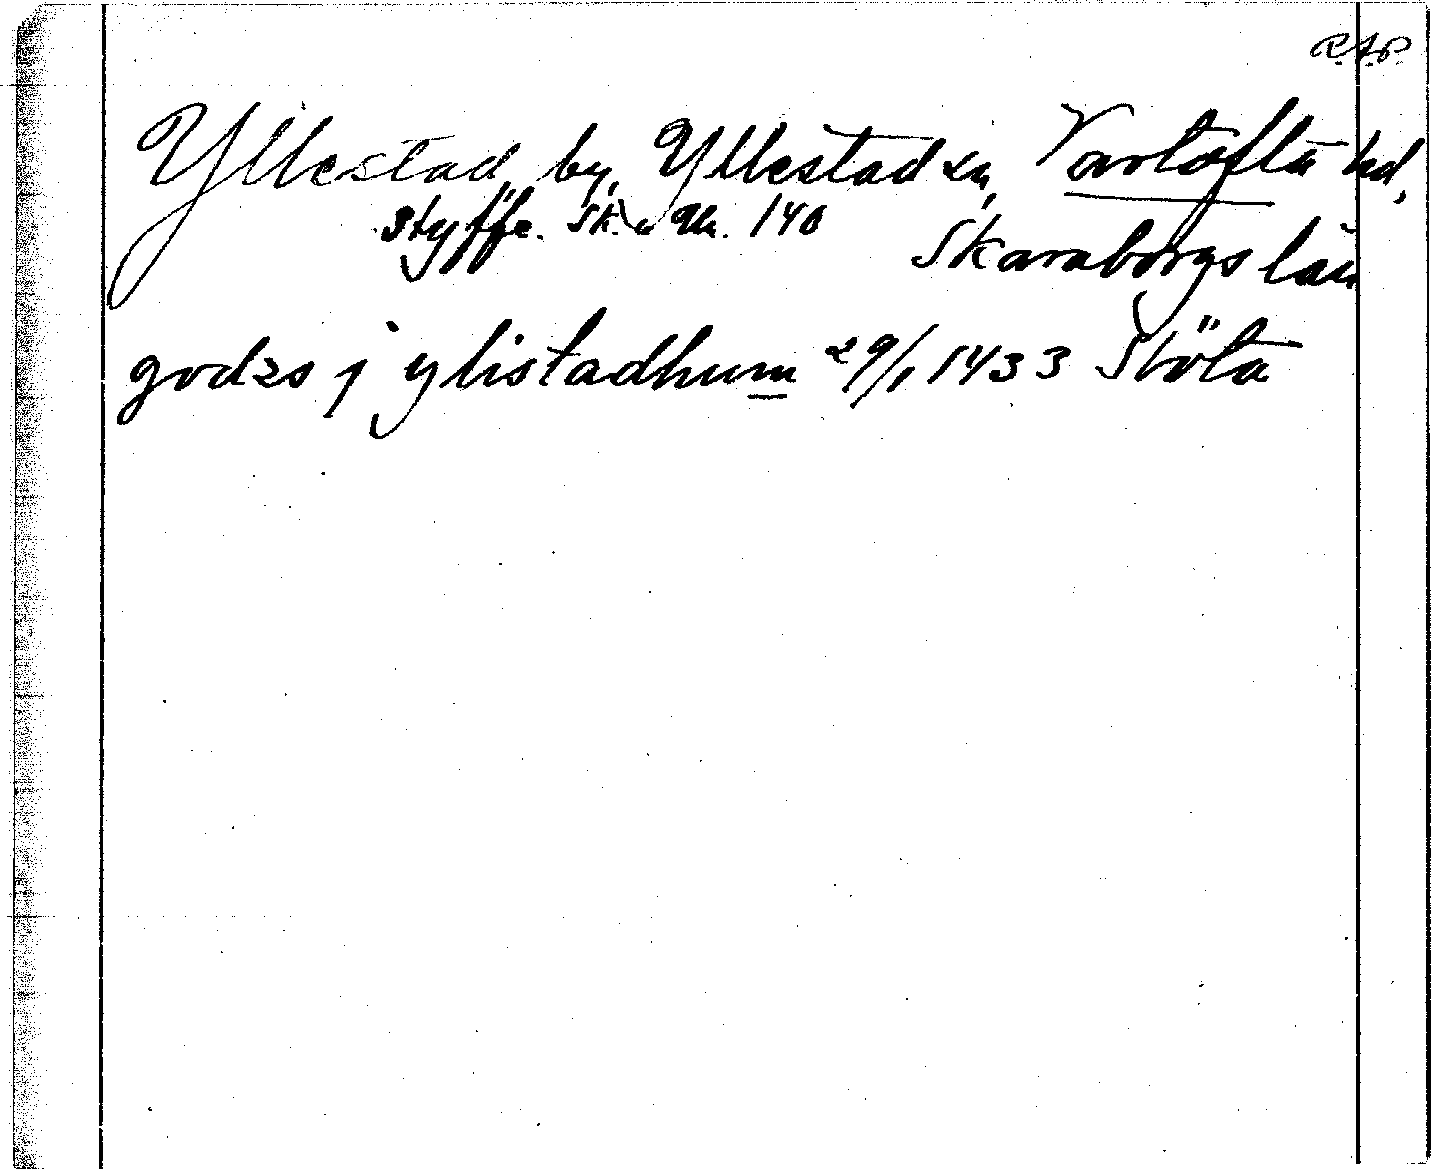 R.A.P.
Yllestad by, Yllestad sn, Vartofta hd,
Styffe. Sk. u Un. 140
Skaraborgs län
godzs j ylistadhum 29/1 1433 Stöta